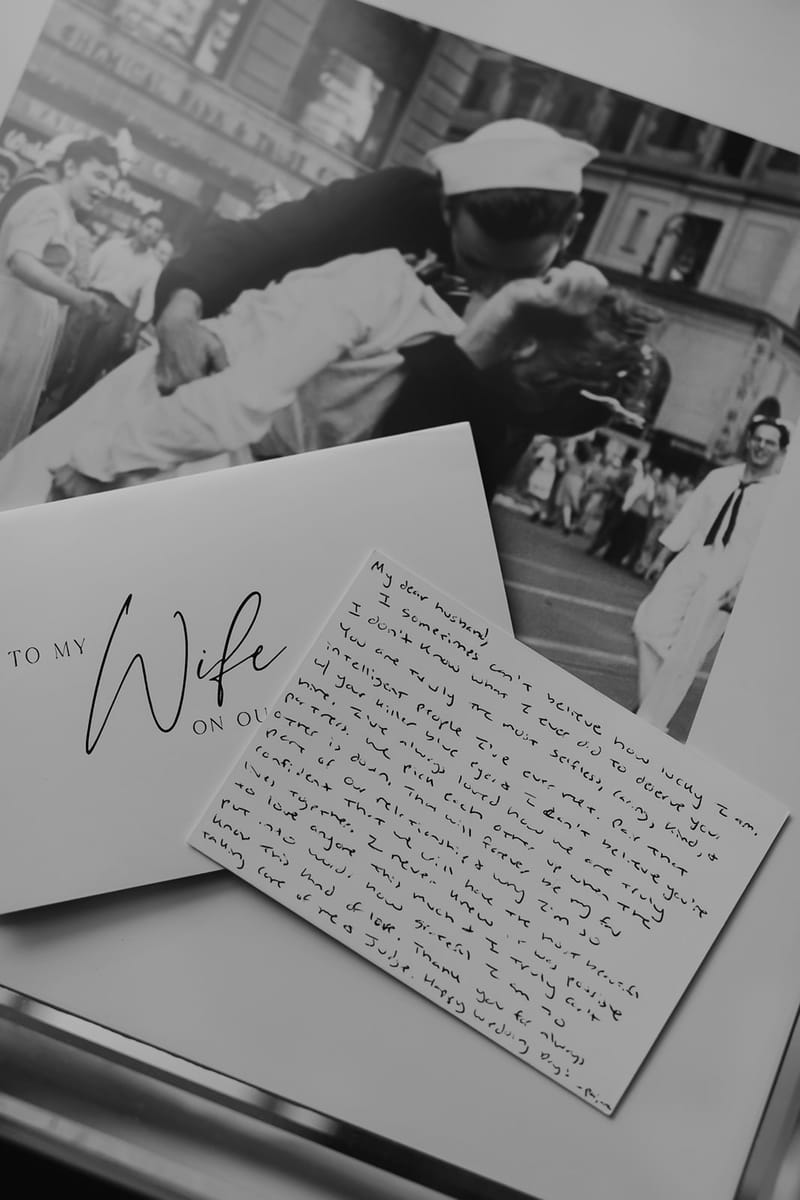 CHEMICAL BANK & TRUST CO
TO MY
Wife
ON OU
My dear husband,
I sometimes can't believe how lucky I am.
I don't know what I ever did to deserve you.
You are truly the most selfless, caring, kind, &
intelligent people I've ever met. Pair that
w/ your killer blue eyes & I don't believe you're
mine. I've always loved how we are truly
partners. We pick each other up when the
other is down. That will forever be my fav
part of our relationship & why I'm so
confident that we will have the most beautiful
lives together. I never knew it was possible
to love anyone this much & I truly can't
put into words how grateful I am to
know this kind of love. Thank you for always
taking care of me & Judge. Happy Wedding Day!